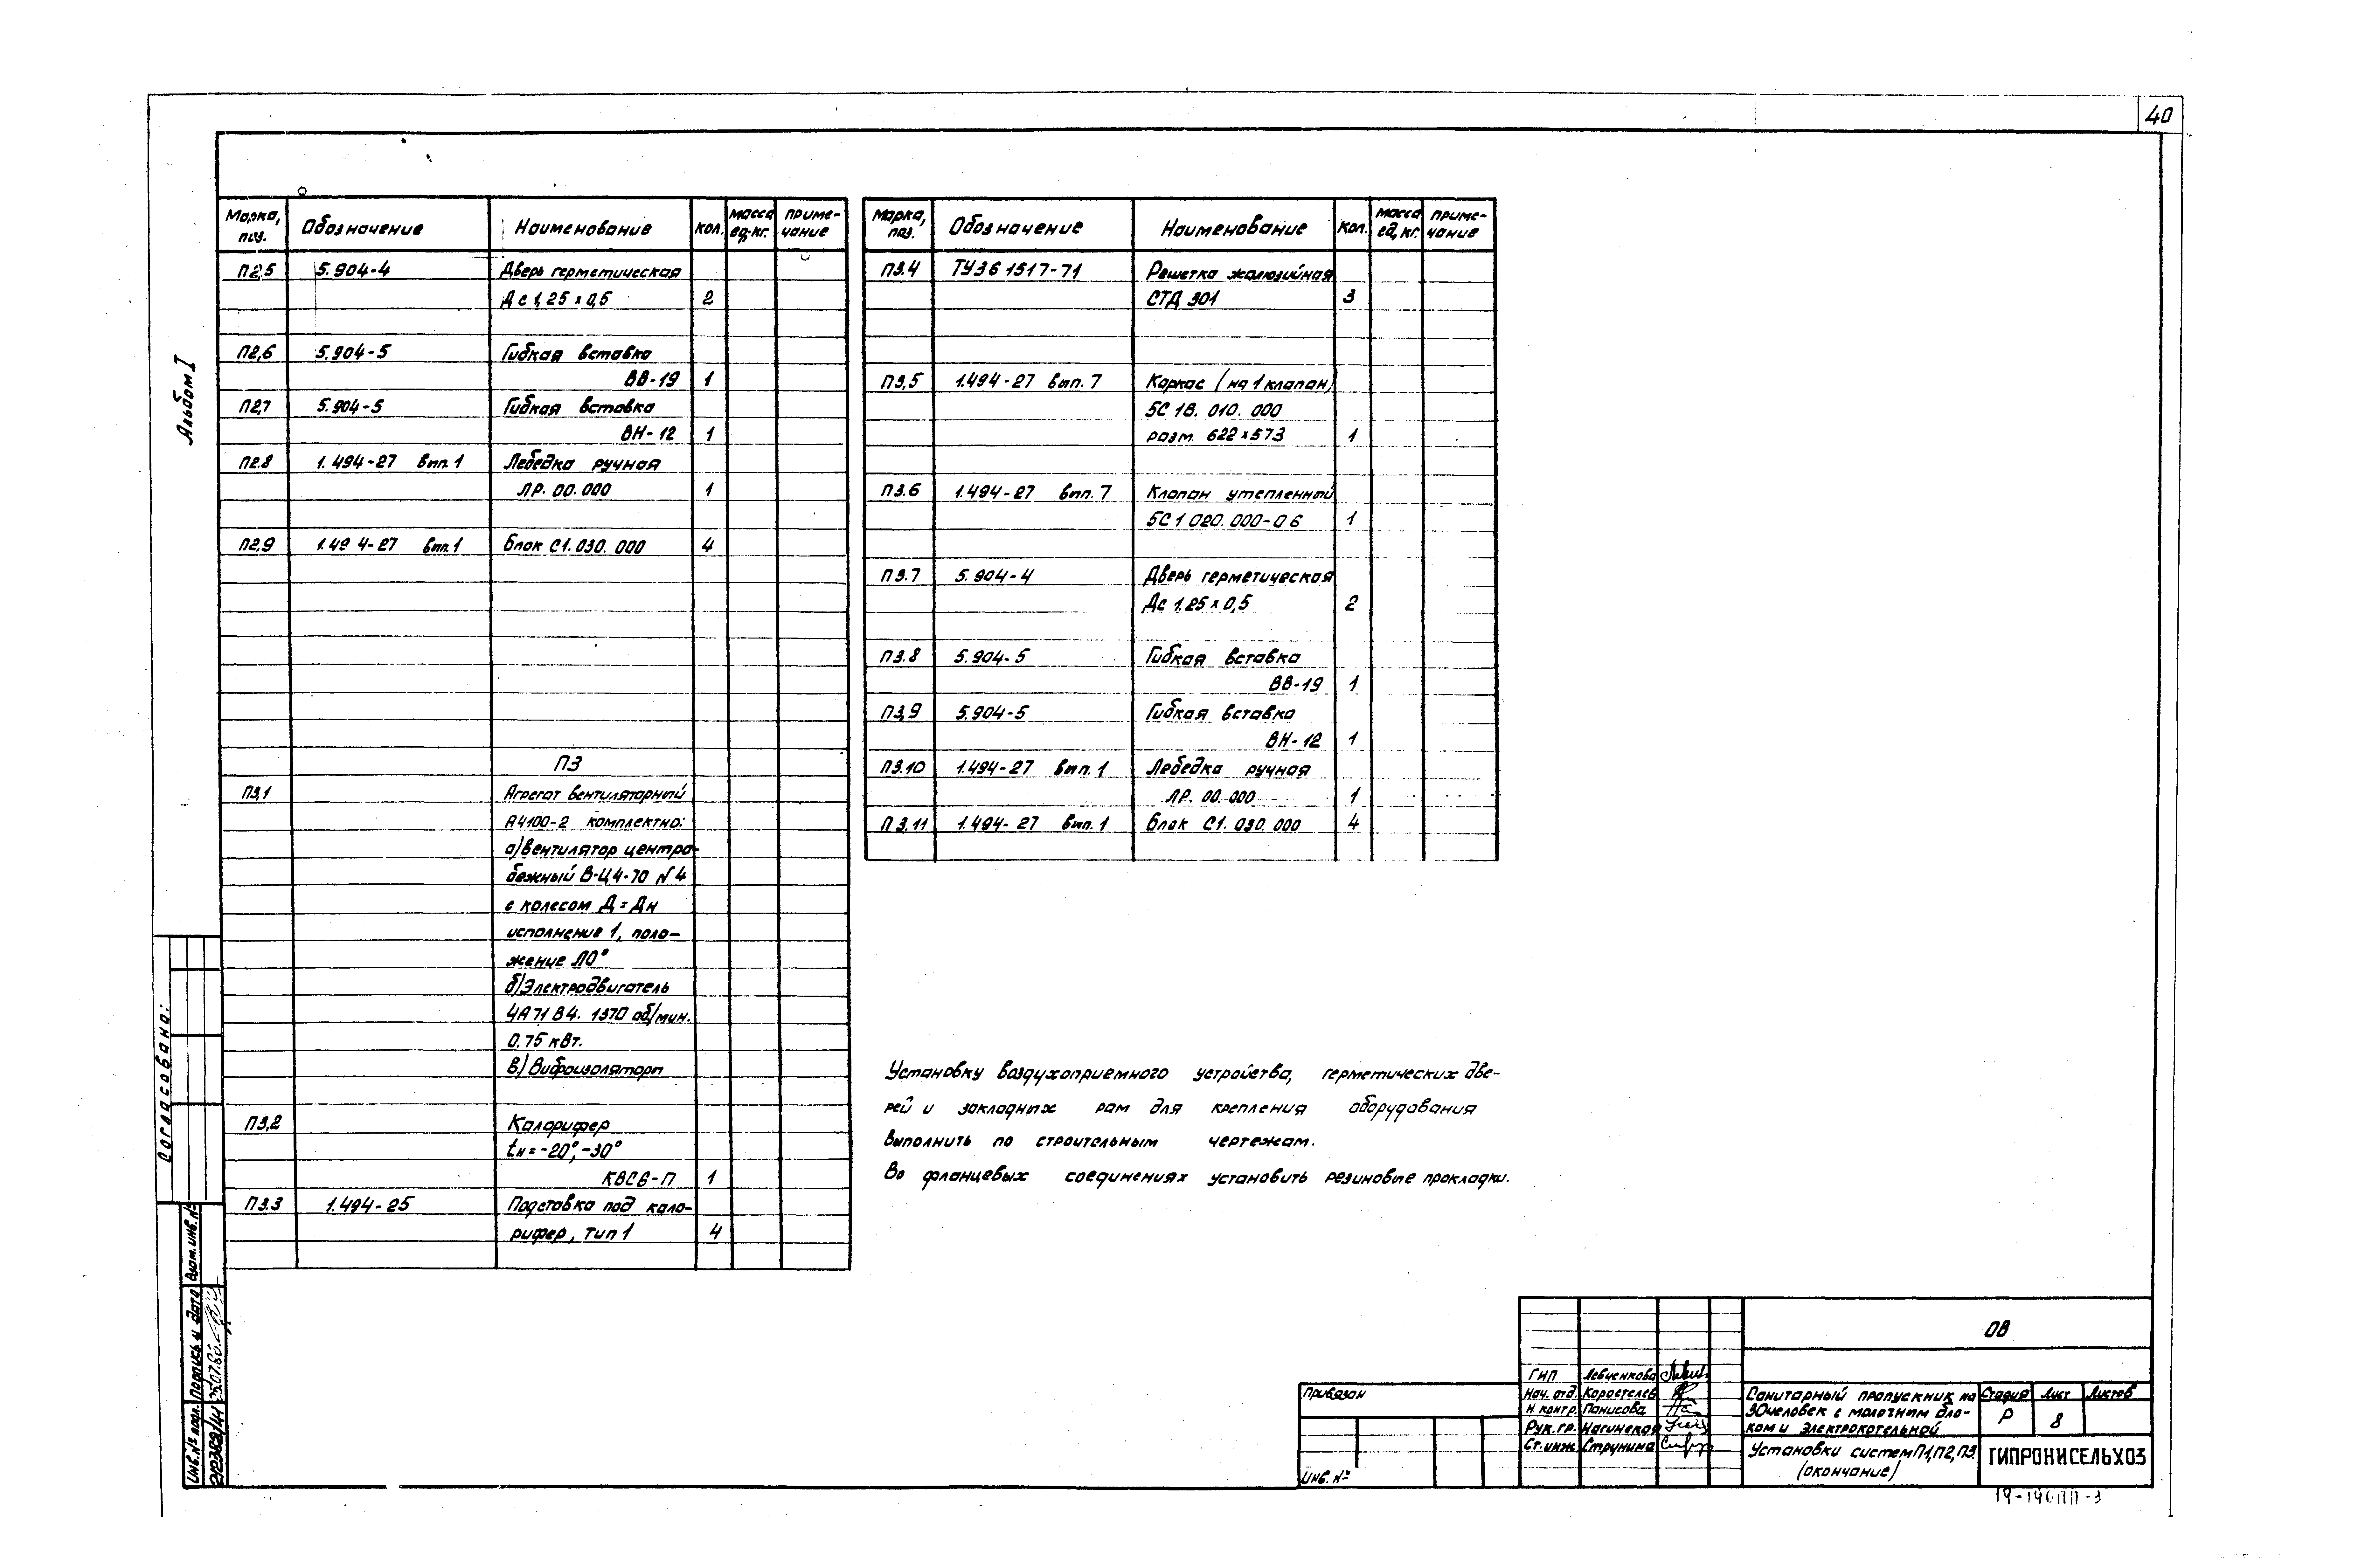 40
Альбом I
Марка, поз. Обозначение Наименование кол. масса ед. кг. приме-чание
П2,5 5.904-4 Дверь герметическая
Дс 1,25 х 0,5 2
П2,6 5.904-5 Гибкая вставка
ВВ-19 1
П2,7 5.904-5 Гибкая вставка
ВН-12 1
П2.8 1.494-27 вып.1 Лебедка ручная
ЛР.00.000 1
П2,9 1.494-27 вып.1 Блок С1.030.000 4
П3
П3,1 Агрегат вентиляторный
А4100-2 комплектно:
а) вентилятор центро-
бежный В-Ц4-70 №4
с колесом Д=Дн
исполнение 1, поло-
жение Л0°
б) Электродвигатель
4А71В4. 1370 об/мин.
0.75 кВт.
в) Виброизоляторы
П3,2 Калорифер
tн=-20°,-30°
КВС6-П 1
П3.3 1.494-25 Подставка под кало-
рифер, тип 1 4
Марка, поз. Обозначение Наименование кол. масса ед, кг. приме-чание
П3.4 ТУ36 1517-71 Решетка жалюзийная
СТД 301 3
П3,5 1.494-27 вып.7 Каркас (на 1 клапан)
5С 18.010.000
разм. 622х573 1
П3.6 1.494-27 вып.7 Клапан утепленный
5С1 020.000-06 1
П3.7 5.904-4 Дверь герметическая
Дс 1.25х0,5 2
П3.8 5.904-5 Гибкая вставка
ВВ-19 1
П3,9 5.904-5 Гибкая вставка
ВН-12 1
П3.10 1.494-27 вып.1 Лебедка ручная
ЛР.00.000 1
П3.11 1.494-27 вып.1 Блок С1.030.000 4
Установку воздухоприемного устройства, герметических две-
рей и закладных рам для крепления оборудования
выполнить по строительным чертежам.
Во фланцевых соединениях установить резиновые прокладки.
Согласовано:
Взам.инв.№
Подпись и дата
25.07.80
Инв.№ подл.
Привязан
Инв.№
ГИП Левченкова
Нач. отд. Коростелев
Н. контр. Панисова
Рук.гр. Нагинская
Ст.инж. Струнина
ОВ
Санитарный пропускник на
30человек с молочным бло-
ком и электрокотельной
Стадия Лист Листов
Р 8
Установки систем П1,П2,П3.
(окончание)
ГИПРОНИСЕЛЬХОЗ